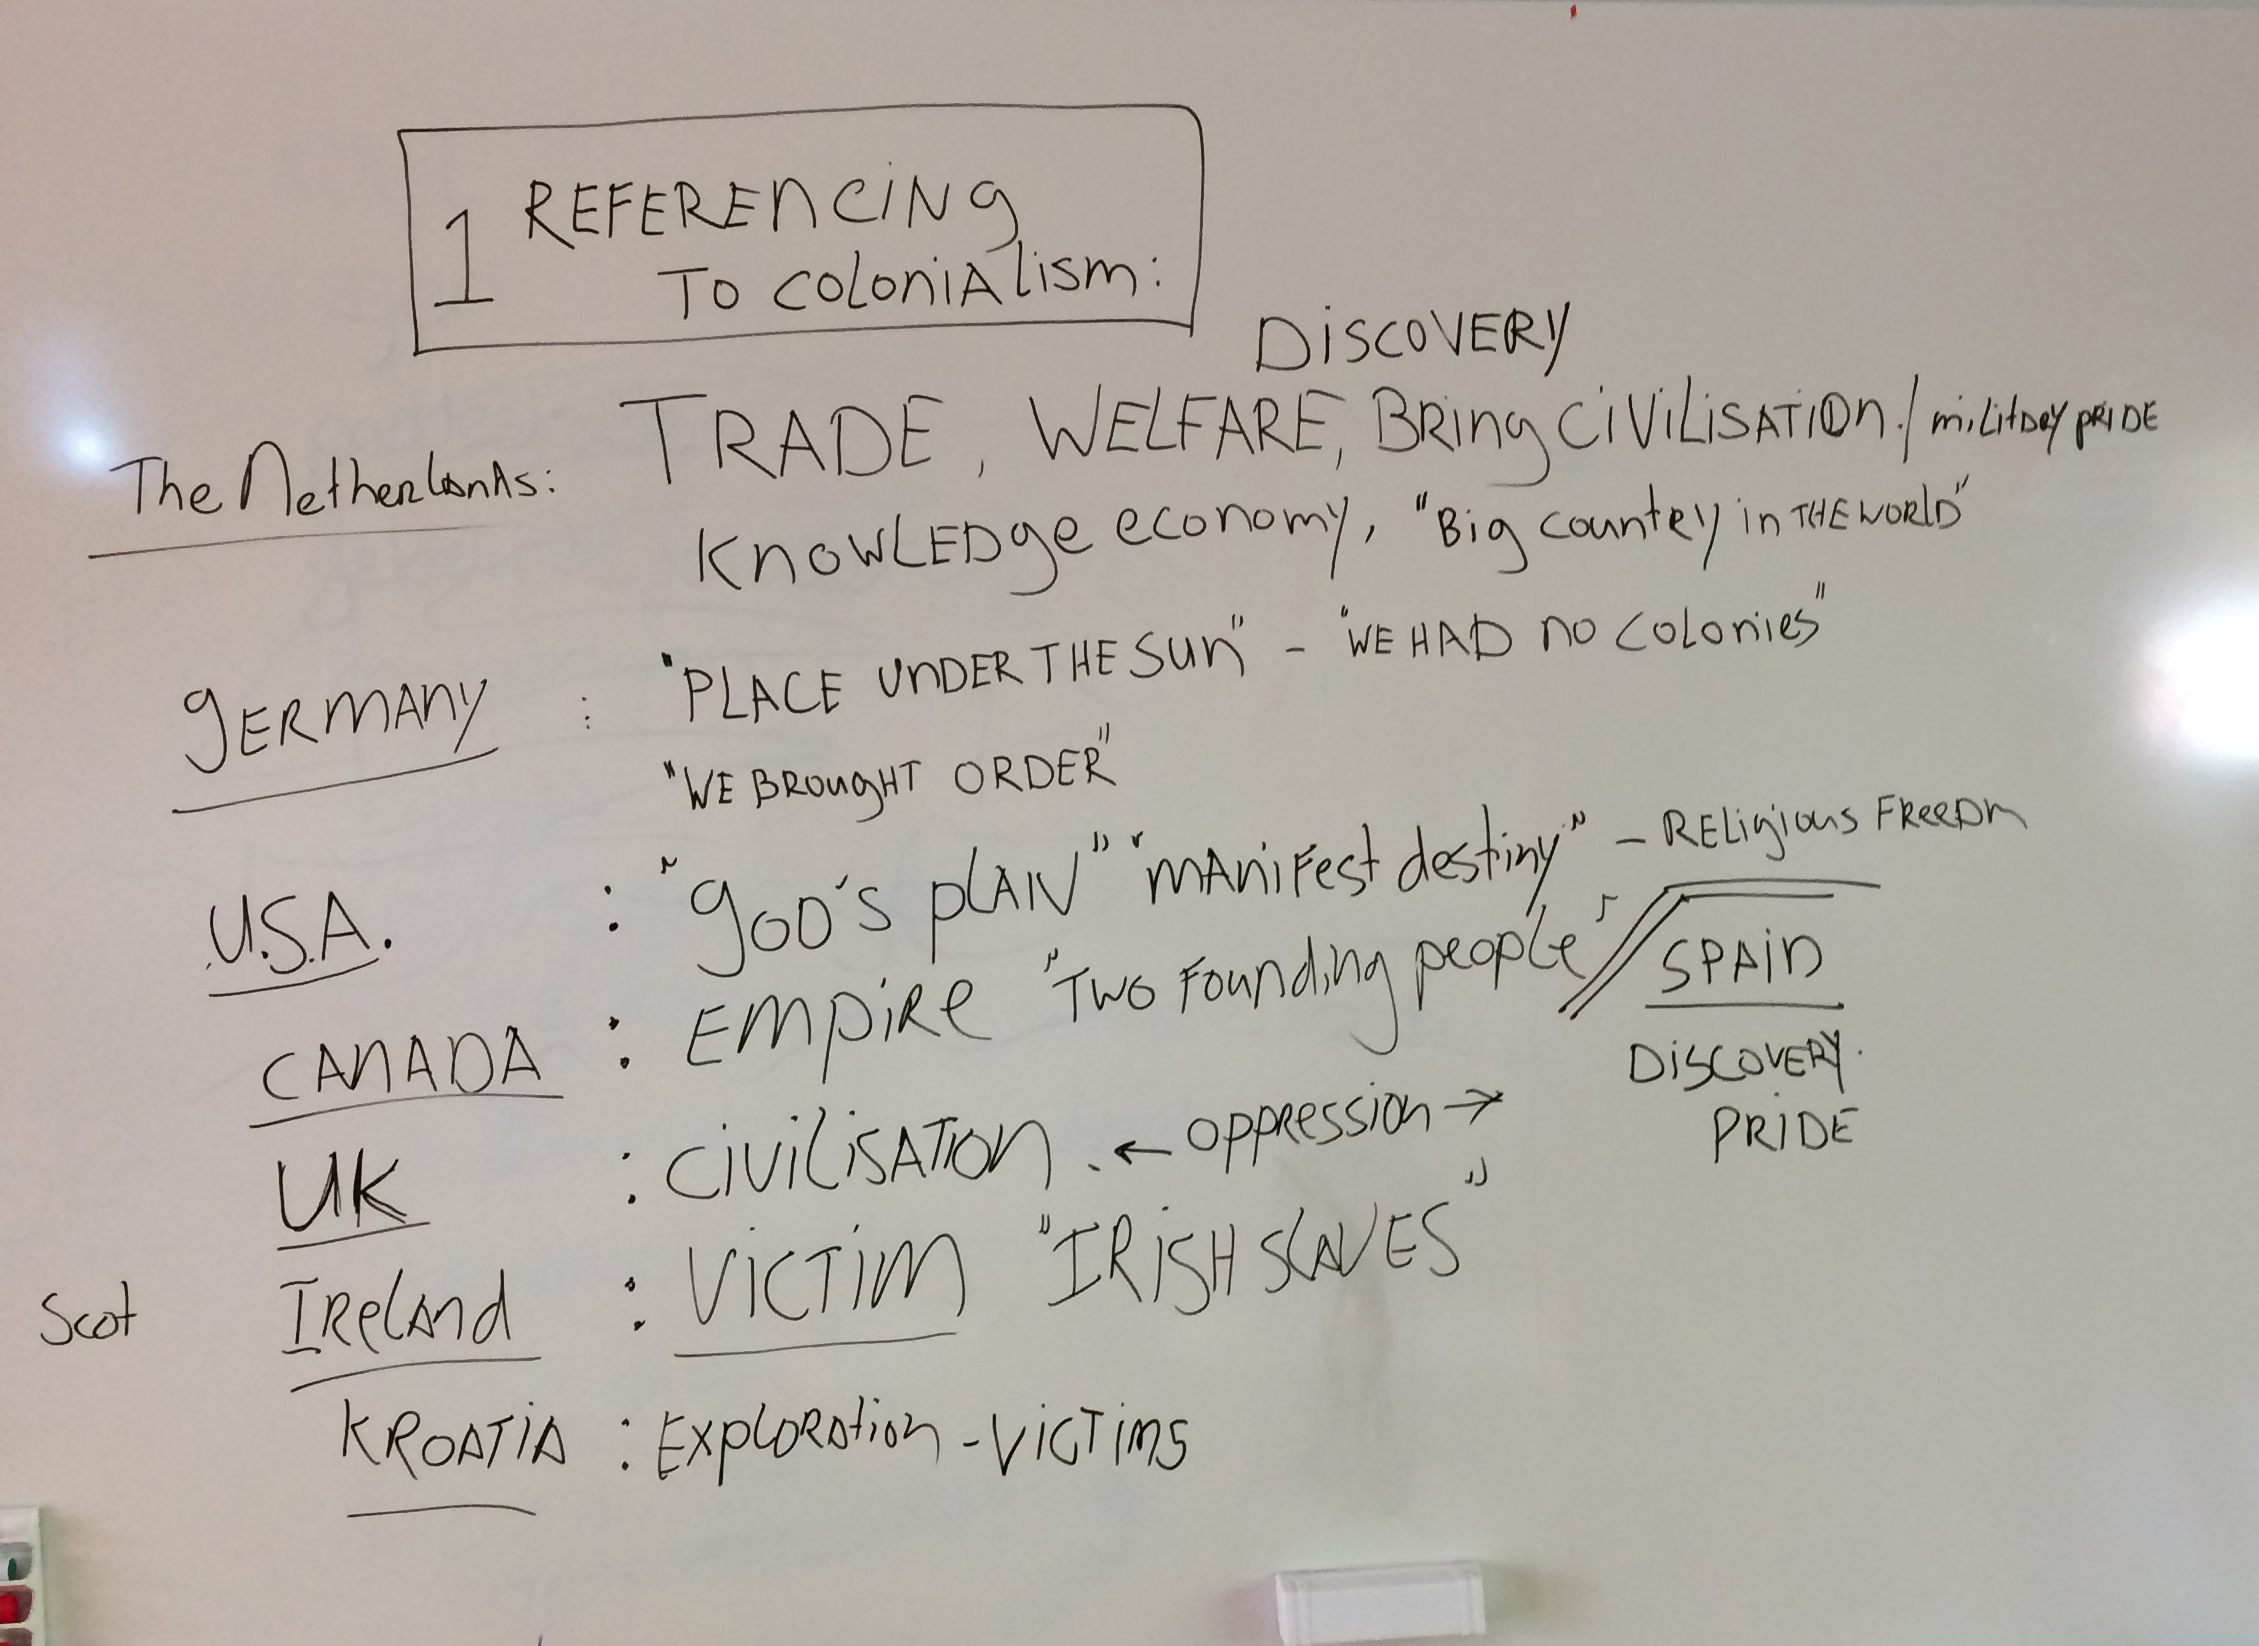 1 REFERENCING
TO COLONIALISM:
DISCOVERY
The Netherlands: TRADE, WELFARE, BRING CIVILISATION. / military PRIDE
KNOWLEDGE economy, "Big country in THE WORLD"
GERMANY : "PLACE UNDER THE SUN" - "WE HAD NO COLONIES"
"WE BROUGHT ORDER"
U.S.A. : "GOD'S PLAN" "MANIFEST destiny" - RELIGIOUS FREEDM
CANADA : EMPIRE "TWO FOUNDING people"
SPAIN
DISCOVERY.
PRIDE
UK : CIVILISATION. ← OPPRESSION →
Scot IRELAND : VICTIM "IRISH SLAVES"
KROATIA : EXPLORATION - VICTIMS